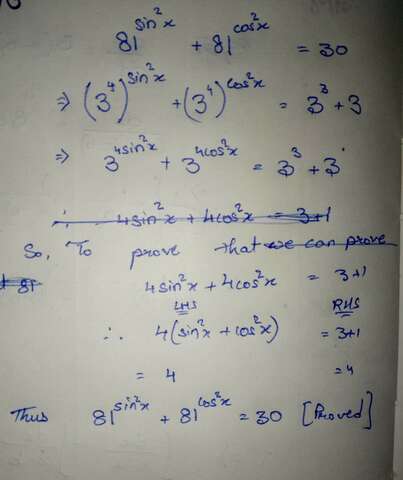 81^sin²x + 81^cos²x = 30
⇒ (3⁴)^sin²x + (3⁴)^cos²x = 3³ + 3
⇒ 3^4sin²x + 3^4cos²x = 3³ + 3
∴ 4sin²x + 4cos²x = 3+1
So, To prove that we can prove
4sin²x + 4cos²x = 3+1
LHS RHS
∴ 4(sin²x + cos²x) = 3+1
= 4 = 4
Thus 81^sin²x + 81^cos²x = 30 [Proved]